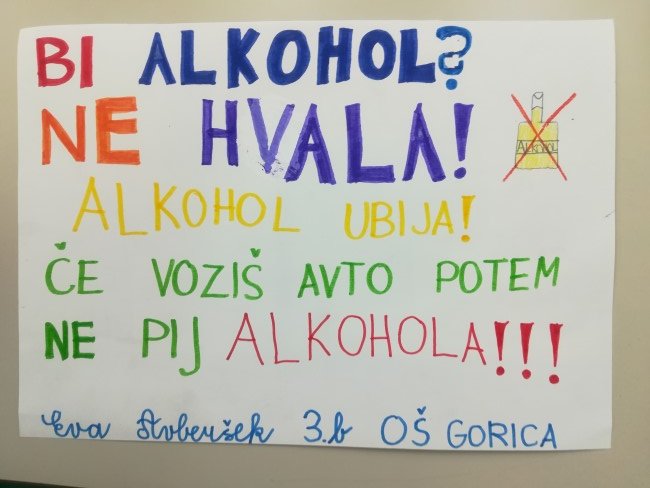 BI ALKOHOL?
NE HVALA!
ALKOHOL
ALKOHOL UBIJA!
ČE VOZIŠ AVTO POTEM
NE PIJ ALKOHOLA!!!
Eva Štoberšek 3.b OŠ GORICA